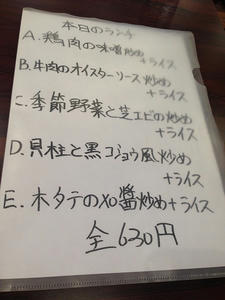 本日のランチ
A. 鶏肉の味噌炒め
+ライス
B. 牛肉のオイスターソース炒め
+ライス
C. 季節野菜と芝エビの炒め
+ライス
D. 貝柱と黒コショウ風炒め
+ライス
E. ホタテのXO醤炒め+ライス
全630円